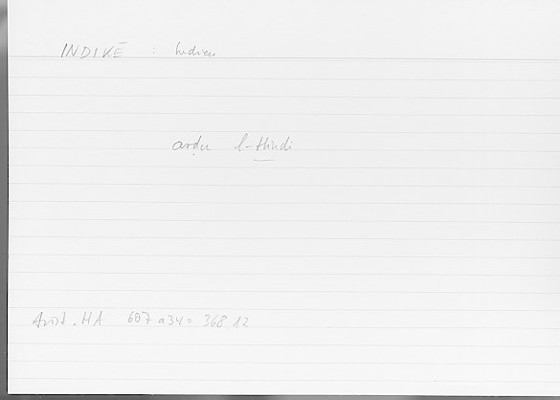 INDIKĒ : Indien
arḍu l-Hindi
Arist. HA 607 a34 = 368,12